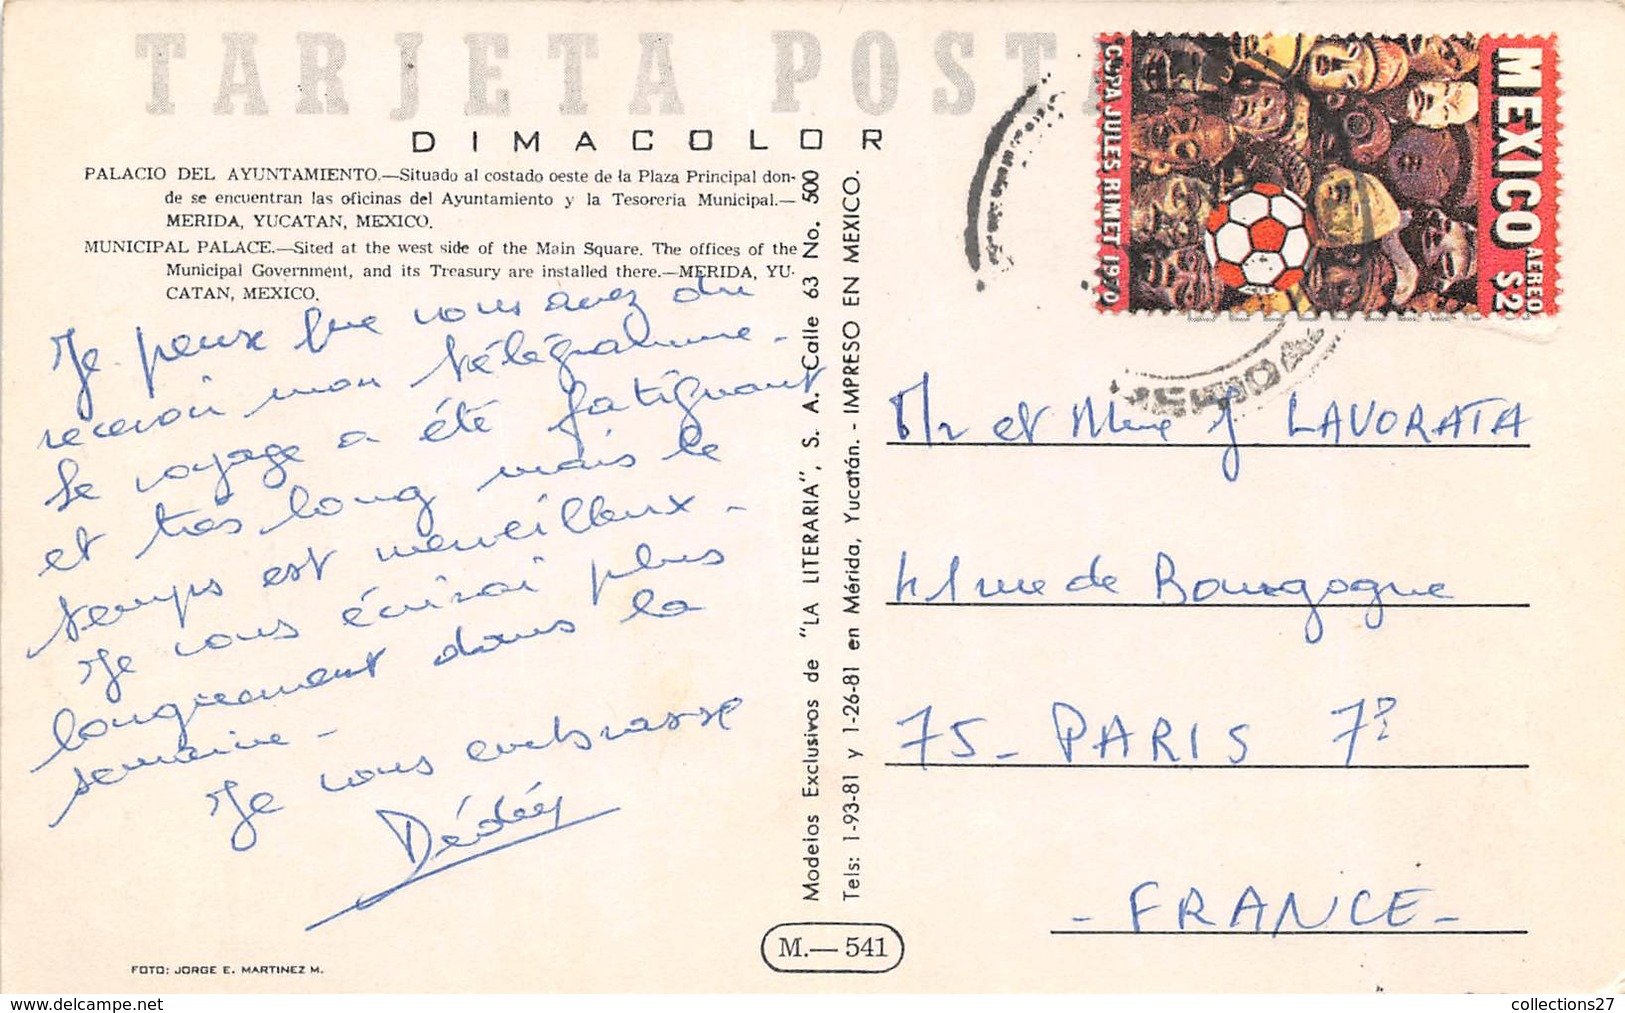 TARJETA POSTA
DIMACOLOR
PALACIO DEL AYUNTAMIENTO.—Situado al costado oeste de la Plaza Principal don-
de se encuentran las oficinas del Ayuntamiento y la Tesoreria Municipal.—
MERIDA, YUCATAN, MEXICO.
MUNICIPAL PALACE.—Sited at the west side of the Main Square. The offices of the
Municipal Government, and its Treasury are installed there.—MERIDA, YU-
CATAN, MEXICO.
Je pense que vous avez du
recevoir mon télégramme.
Le voyage a été fatiguant
et très long mais le
temps est merveilleux.
Je vous écrirai plus
longuement dans la
semaine.
Je vous embrasse
Dédéy
FOTO: JORGE E. MARTINEZ M.
Modelos Exclusivos de "LA LITERARIA", S. A. Calle 63 No. 500
Tels: 1-93-81 y 1-26-81 en Mérida, Yucatán. - IMPRESO EN MEXICO.
M.— 541
COPA JULES RIMET 1970
MEXICO
AEREO $2
MERIDA
Mr et Mme J LAVORATA
41 rue de Bourgogne
75 - PARIS 7e
- FRANCE -
collections27